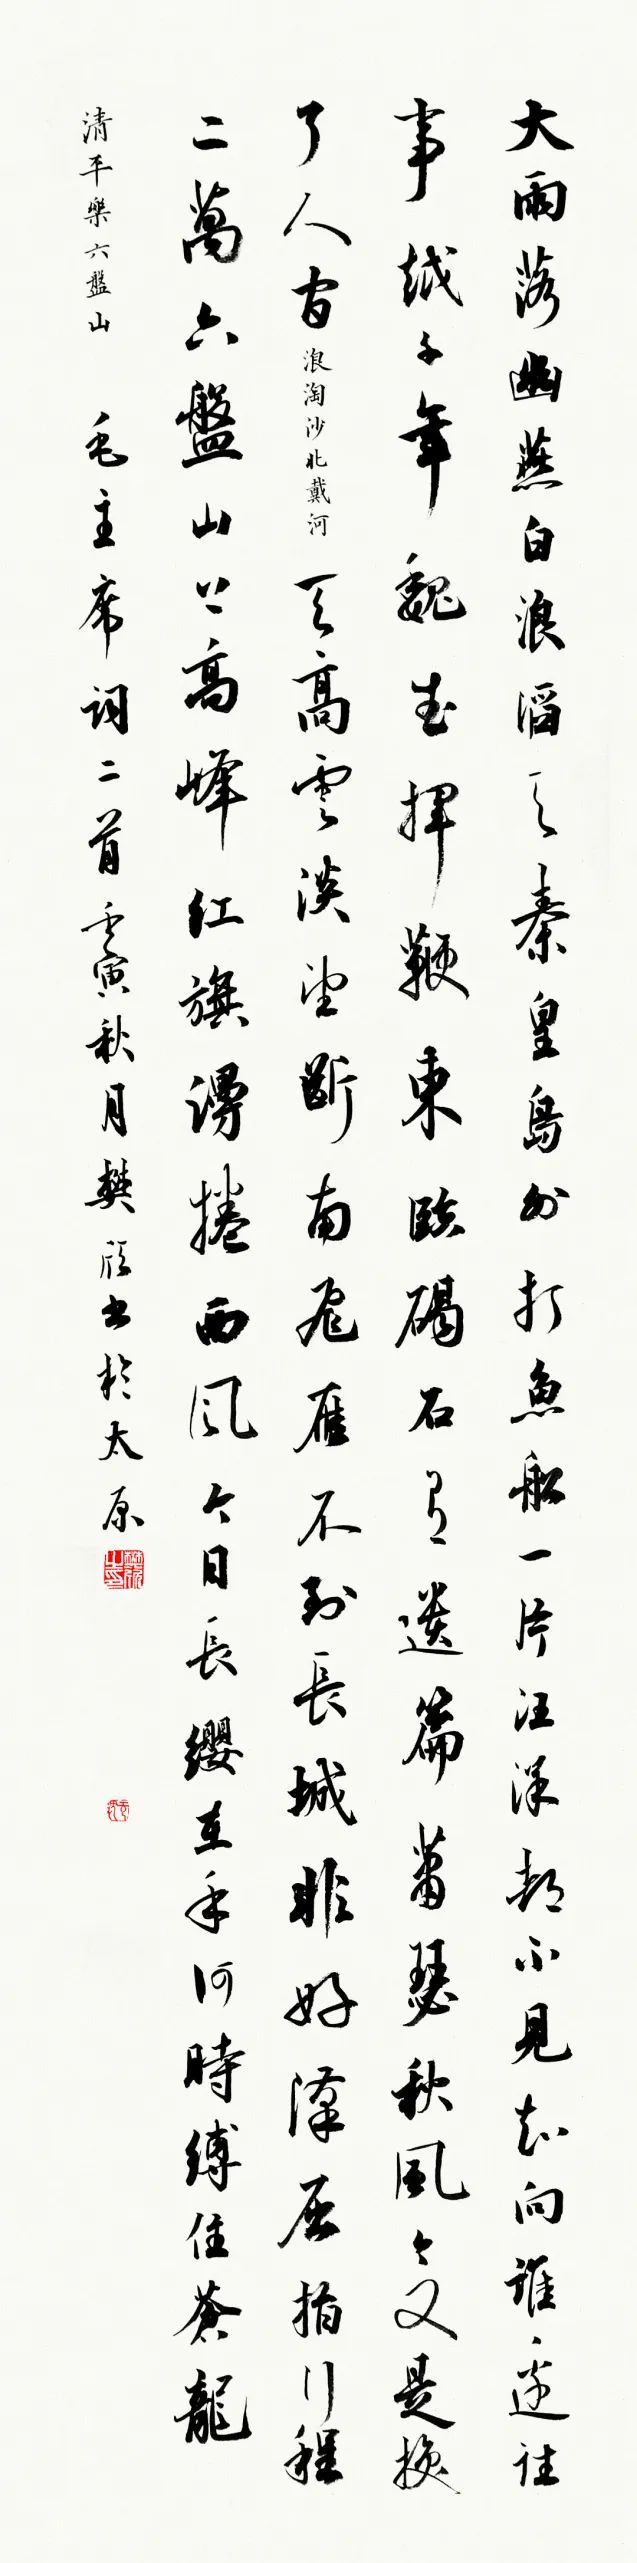 大雨落幽燕白浪滔天秦皇島外打魚船一片汪洋都不見知向誰邊往
事越千年魏武揮鞭東臨碣石有遺篇蕭瑟秋風今又是換
了人間 浪淘沙北戴河 天高雲淡望斷南飛雁不到長城非好漢屈指行程
二萬六盤山上高峰紅旗漫捲西風今日長纓在手何時縛住蒼龍
清平樂六盤山 毛主席詞二首壬寅秋月樊書於太原